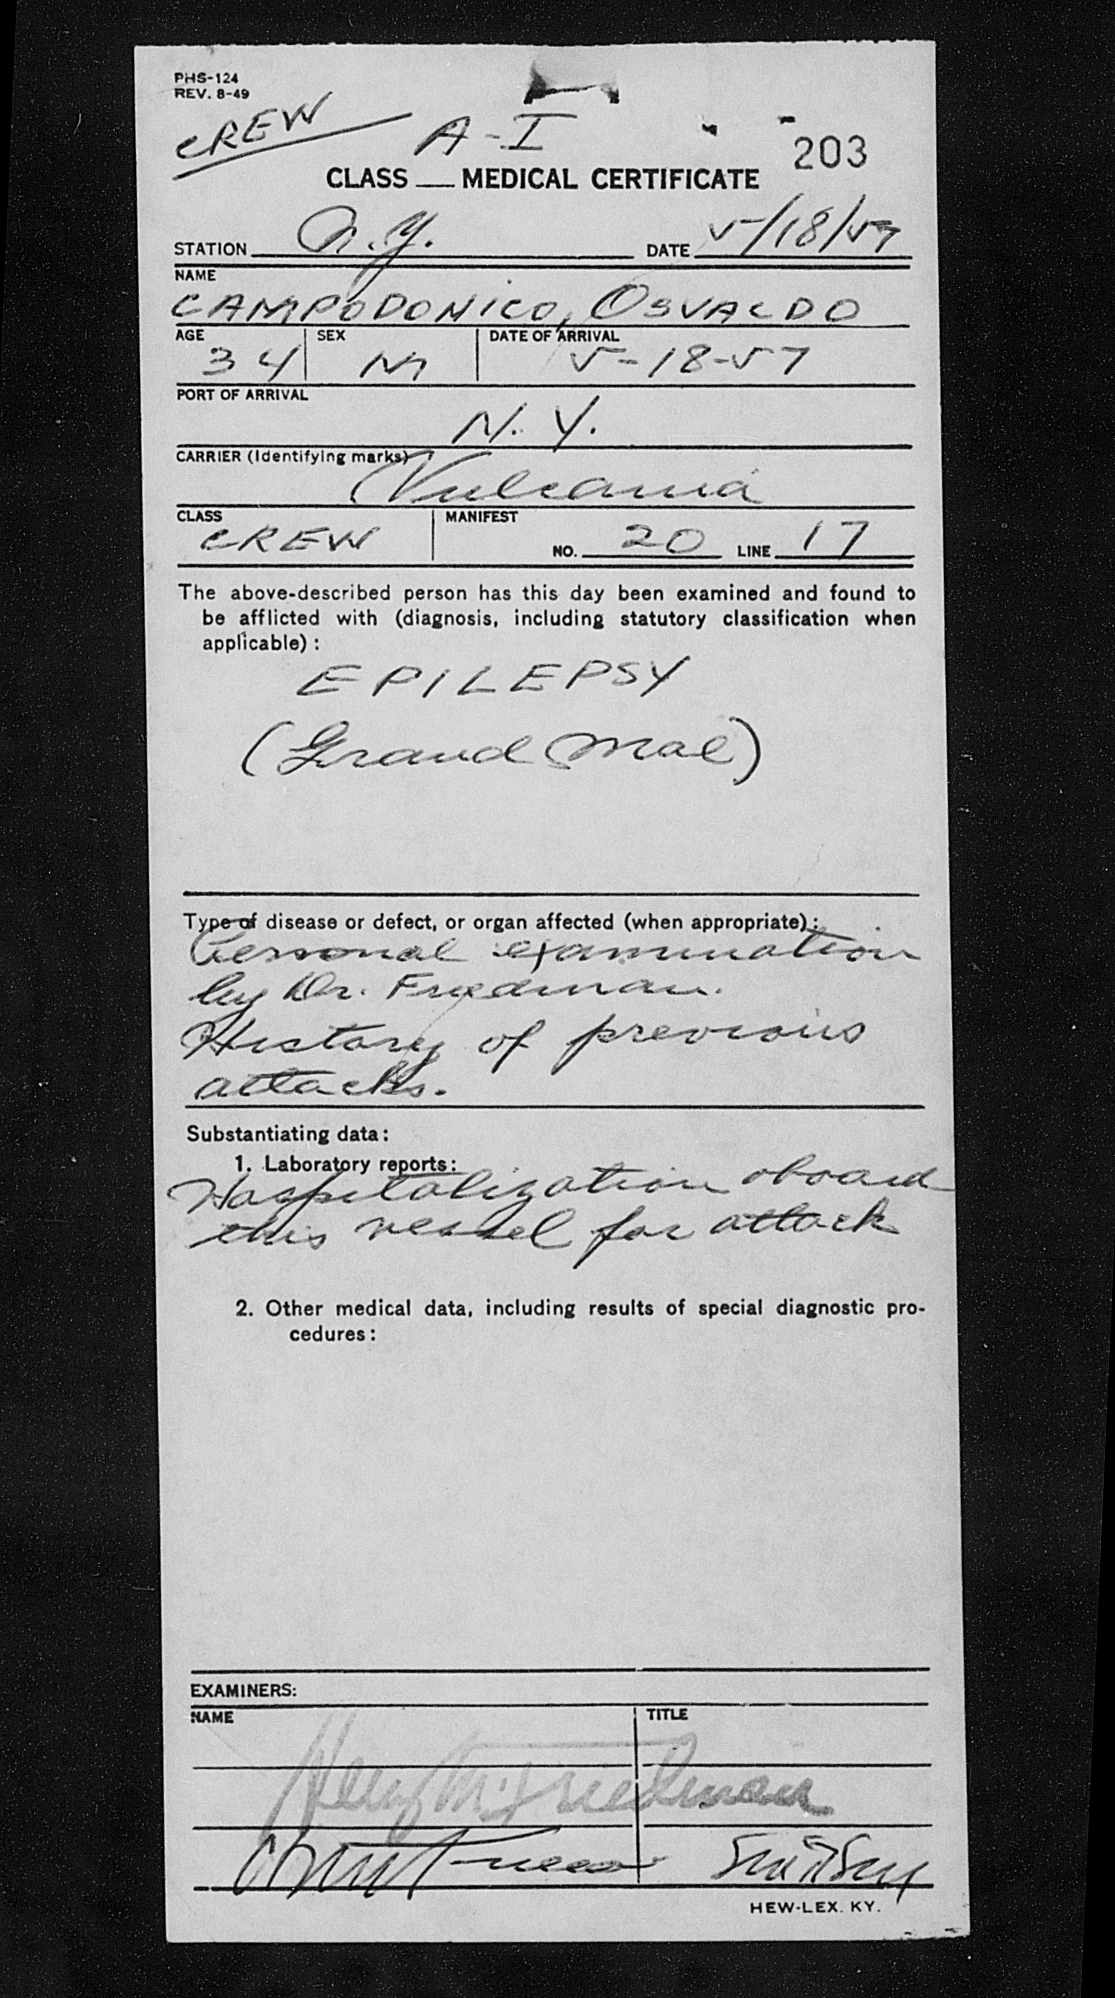 PHS-124
REV. 8-49
CREW
A-I
203
CLASS __ MEDICAL CERTIFICATE
STATION N.Y. DATE 5/18/57
NAME
CAMPODONICO, OSVALDO
AGE 34 SEX M DATE OF ARRIVAL 5-18-57
PORT OF ARRIVAL
N. Y.
CARRIER (Identifying marks)
Vulcania
CLASS CREW MANIFEST NO. 20 LINE 17
The above-described person has this day been examined and found to
be afflicted with (diagnosis, including statutory classification when
applicable):
EPILEPSY
(Grand Mal)
Type of disease or defect, or organ affected (when appropriate):
Personal examination
by Dr. Friedman.
History of previous
attacks.
Substantiating data:
1. Laboratory reports:
Hospitalization aboard
this vessel for attack
2. Other medical data, including results of special diagnostic pro-
cedures:
EXAMINERS:
NAME TITLE
Friedman
HEW-LEX. KY.